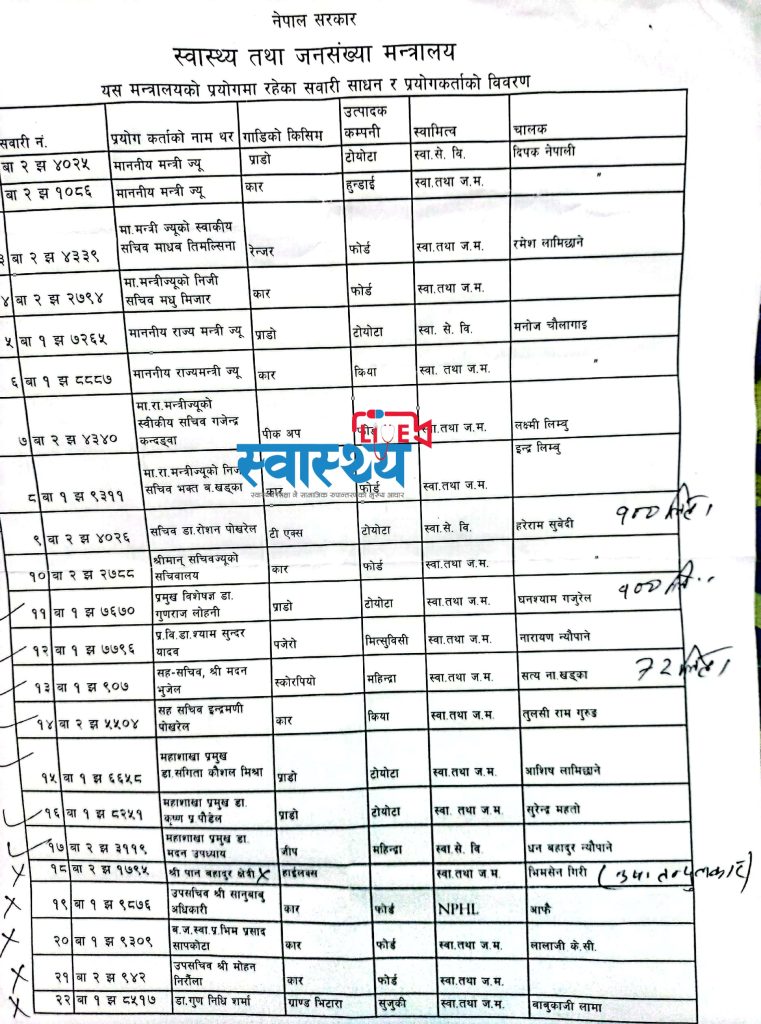 नेपाल सरकार
स्वास्थ्य तथा जनसंख्या मन्त्रालय
यस मन्त्रालयको प्रयोगमा रहेका सवारी साधन र प्रयोगकर्ताको विवरण
सवारी नं. प्रयोग कर्ताको नाम थर गाडिको किसिम उत्पादक कम्पनी स्वामित्व चालक
बा २ झ ४०२५ माननीय मन्त्री ज्यू प्राडो टोयोटा स्वा.से. वि. दिपक नेपाली
बा २ झ १०८६ माननीय मन्त्री ज्यू कार हुन्डाई स्वा.तथा ज.म. "
३ बा २ झ ४३३९ मा.मन्त्री ज्यूको स्वाकीय सचिव माधब तिमल्सिना रेन्जर फोर्ड स्वा.तथा ज.म. रमेश लामिछाने
४ बा २ झ २७९४ मा.मन्त्रीज्यूको निजी सचिव मधु मिजार कार फोर्ड स्वा.तथा ज.म.
५ बा १ झ ७२६५ माननीय राज्य मन्त्री ज्यू प्राडो टोयोटा स्वा. से. वि. मनोज चौलागाइ
६ बा १ झ ८८८७ माननीय राज्यमन्त्री ज्यू कार किया स्वा. तथा ज.म. "
७ बा २ झ ४३४० मा.रा.मन्त्रीज्यूको स्वीकीय सचिव गजेन्द्र कन्दड्वा पीक अप फोर्ड स्वा.तथा ज.म. लक्ष्मी लिम्बु
LIVE
स्वास्थ्य
८ बा १ झ ९३११ मा.रा.मन्त्रीज्यूको निजी सचिव भक्त ब.खड्का कार फोर्ड स्वा.तथा ज.म. इन्द्र लिम्बु
९ बा २ झ ४०२६ सचिव डा.रोशन पोखरेल टी एक्स टोयोटा स्वा.से. वि. हरेराम सुबेदी १००
१० बा २ झ २७८८ श्रीमान् सचिवज्यूको सचिवालय कार फोर्ड स्वा.तथा ज.म. "
११ बा १ झ ७६७० प्रमुख विशेषज्ञ डा. गुणराज लोहनी प्राडो टोयोटा स्वा.तथा ज.म. घनश्याम गजुरेल १००
१२ बा १ झ ७७९६ प्र.वि.डा.श्याम सुन्दर यादव पजेरो मित्सुविसी स्वा.तथा ज.म. नारायण न्यौपाने
१३ बा १ झ ९०७ सह-सचिव, श्री मदन भुजेल स्कोरपियो महिन्द्रा स्वा.तथा ज.म. सत्य ना.खड्का 72
१४ बा २ झ ५५०४ सह सचिव इन्द्रमणी पोखरेल कार किया स्वा.तथा ज.म. तुलसी राम गुरुड
१५ बा १ झ ६६५८ महाशाखा प्रमुख डा.सगिता कौशल मिश्रा प्राडो टोयोटा स्वा.तथा ज.म. आशिष लामिछाने
१६ बा १ झ ८२५१ महाशाखा प्रमुख डा. कृष्ण प्र पौडेल प्राडो टोयोटा स्वा. तथा ज.म. सुरेन्द्र महतो
१७ बा २ झ ३११९ महाशाखा प्रमुख डा. मदन उपध्याय जीप महिन्द्रा स्वा. से. वि. धन बहादुर न्यौपाने
१८ बा २ झ १७९५ श्री पान बहादुर क्षेत्री हाईलक्स स्वा.तथा ज.म. भिमसेन गिरी
१९ बा १ झ ९८७६ उपसचिव श्री सानुबाबु अधिकारी कार फोर्ड NPHL आफै
२० बा १ झ ९३०९ ब.ज.स्वा.प्र.भिम प्रसाद सापकोटा कार फोर्ड स्वा.तथा ज.म. लालाजी के.सी.
२१ बा २ झ ९४२ उपसचिव श्री मोहन निरौला कार फोर्ड स्वा.तथा ज.म.
२२ बा १ झ ८५१७ डा.गुण निधि शर्मा ग्राण्ड भिटारा सुजुकी स्वा.तथा ज.म. बाबुकाजी लामा